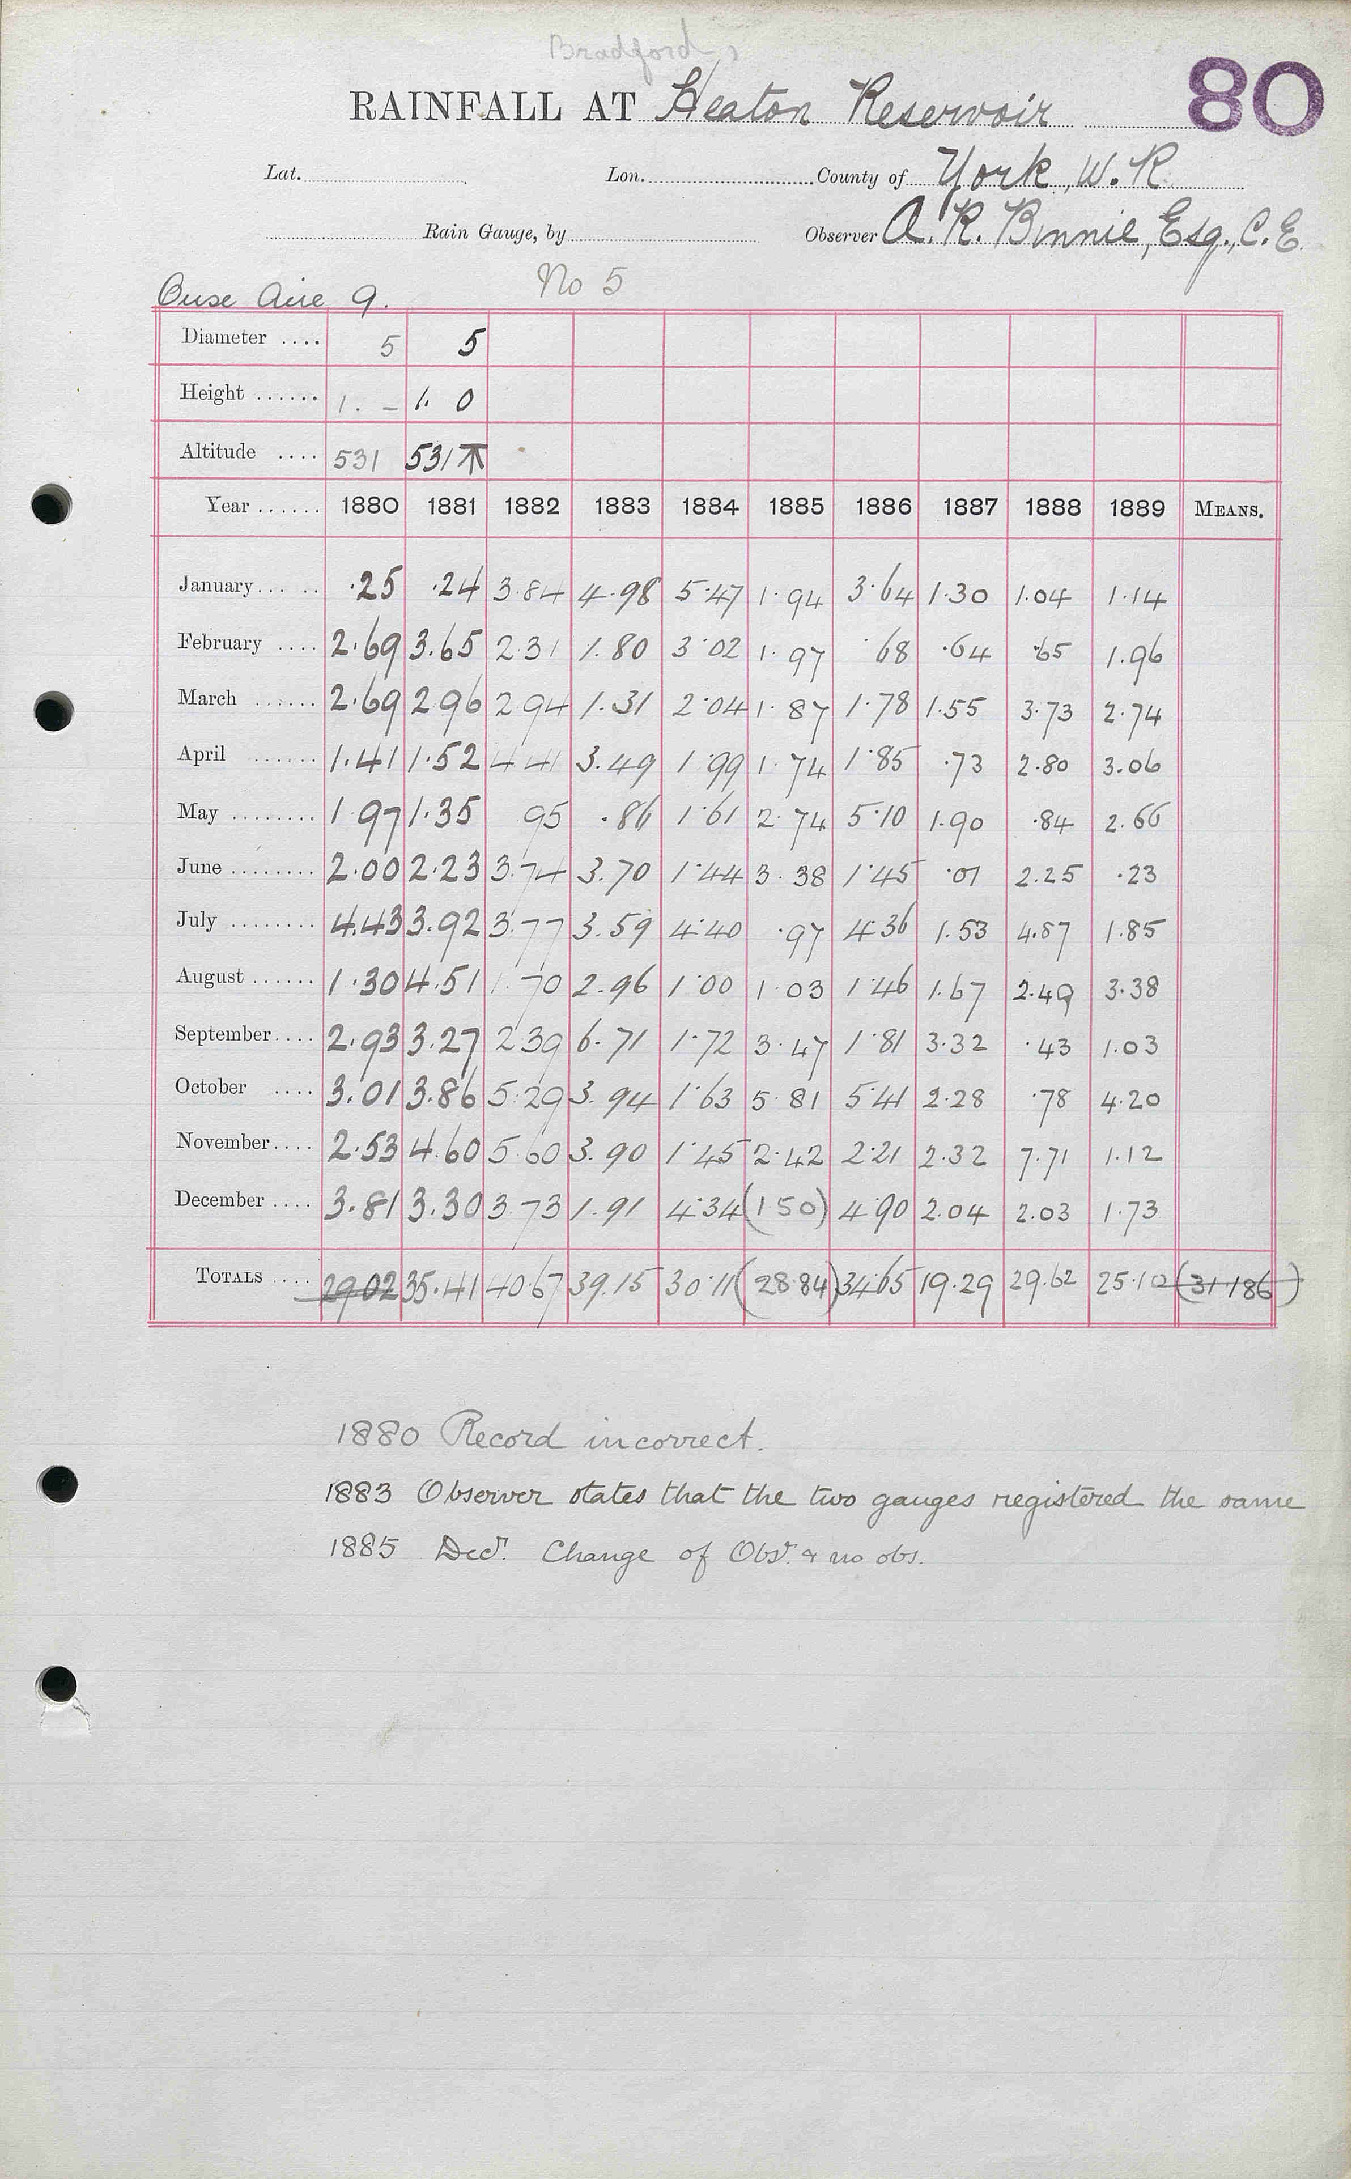 Bradford,
RAINFALL AT Heaton Reservoir 80
Lat. Lon. County of York, W.R.
Rain Gauge, by Observer A. R. Binnie, Esq., C.E.
Ouse Aire 9. No 5
Diameter .... 5 5
Height ...... 1. - 1. 0
Altitude .... 531 531
Year ...... 1880 1881 1882 1883 1884 1885 1886 1887 1888 1889 MEANS.
January ..... .25 .24 3.84 4.98 5.47 1.94 3.64 1.30 1.04 1.14
February .... 2.69 3.65 2.31 1.80 3.02 1.97 .68 .64 .65 1.96
March ...... 2.69 2.96 2.94 1.31 2.04 1.87 1.78 1.55 3.73 2.74
April ...... 1.41 1.52 4.41 3.49 1.99 1.74 1.85 .73 2.80 3.06
May ........ 1.97 1.35 95 .86 1.61 2.74 5.10 1.90 .84 2.66
June ........ 2.00 2.23 3.74 3.70 1.44 3.38 1.45 .01 2.25 .23
July ........ 4.43 3.92 3.77 3.59 4.40 .97 4.36 1.53 4.87 1.85
August ...... 1.30 4.51 1.70 2.96 1.00 1.03 1.46 1.67 2.49 3.38
September .... 2.93 3.27 2.39 6.71 1.72 3.47 1.81 3.32 .43 1.03
October .... 3.01 3.86 5.29 3.94 1.63 5.81 5.41 2.28 .78 4.20
November .... 2.53 4.60 5.60 3.90 1.45 2.42 2.21 2.32 7.71 1.12
December .... 3.81 3.30 3.73 1.91 4.34 (1.50) 4.90 2.04 2.03 1.73
TOTALS .... 29.02 35.41 40.67 39.15 30.11 (28.84) 34.65 19.29 29.62 25.10 (31.186)
1880 Record incorrect.
1883 Observer states that the two gauges registered the same
1885 Decr. Change of Obsr. & no obs.